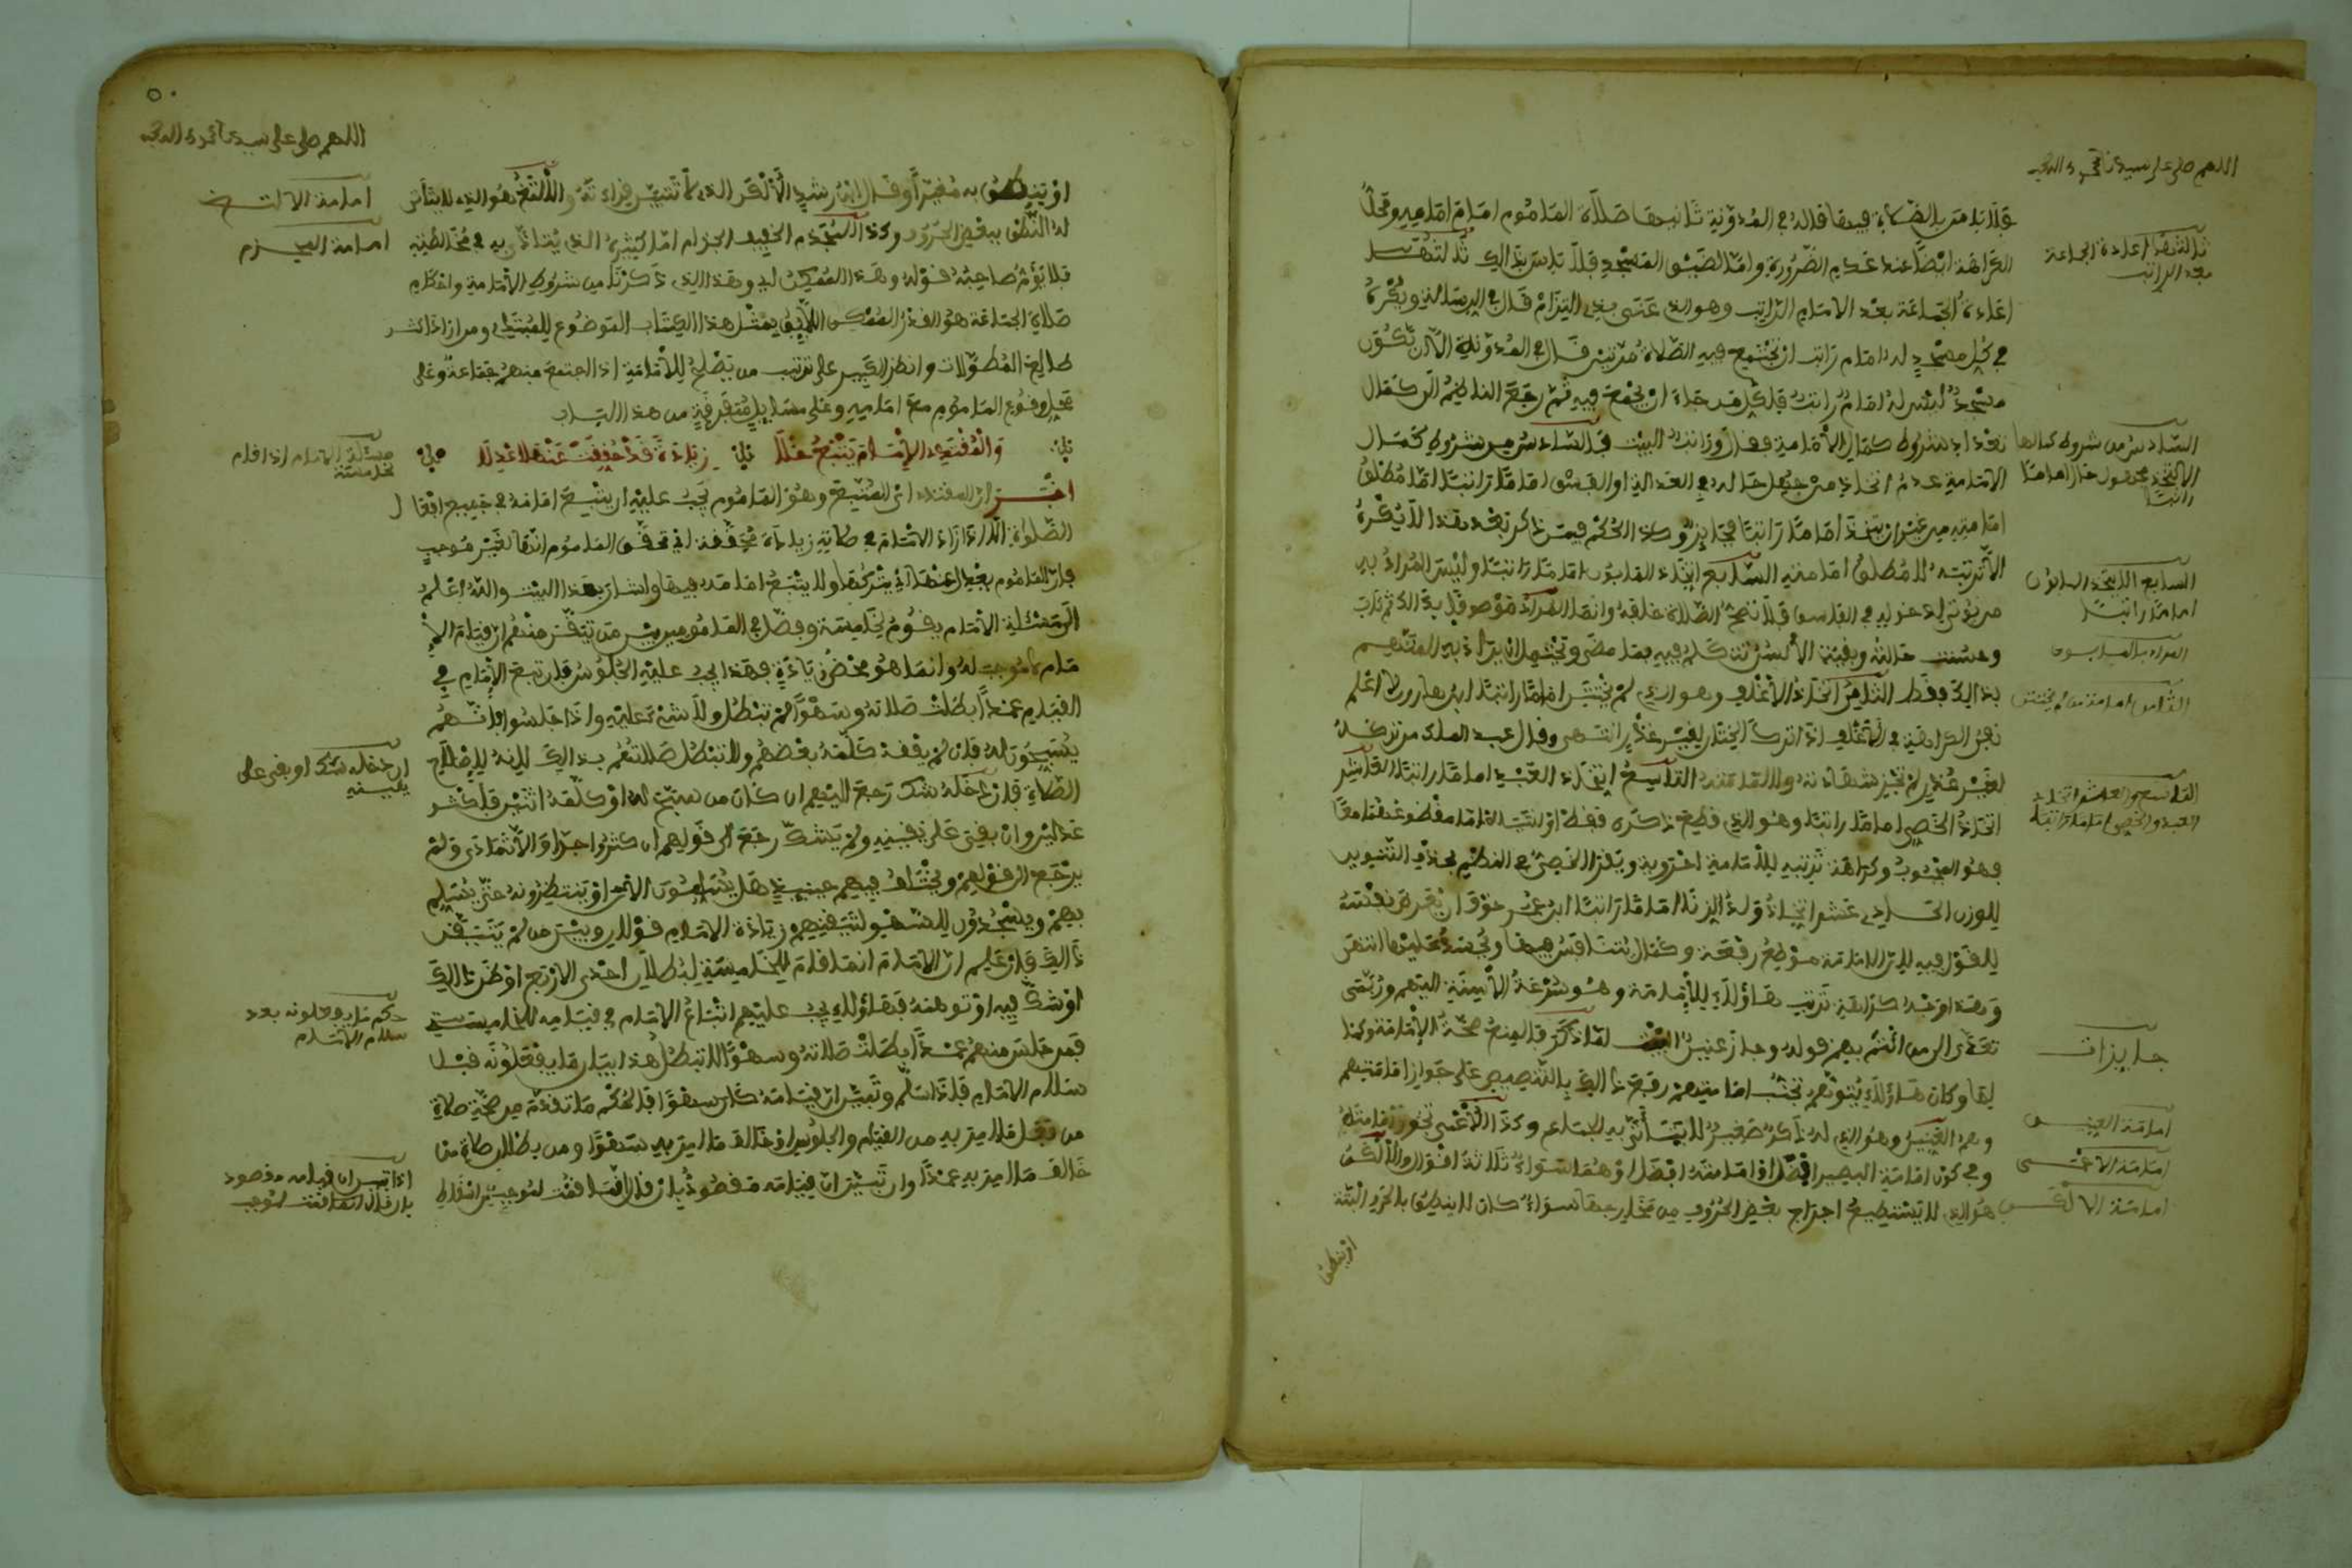 اللهم صل على سيدنا محمد وءاله وصحبه
فلا باس بالصلاة فيها قاله في المدونة ثانيها صلاة الماموم امام امامه ومحل
الكراهة ايضا عند عدم الضرورة واما لضيق المسجد فلا باس بذالك ثالثها
اعادة الجماعة بعد الامام الراتب وهو الذي عنى بذي التزام قال في الرسالة ويكره
في كل مسجد له امام راتب ان تجتمع فيه الصلاة مرتين قال في المدونة الا ان يكون
مسجد ليس له امام راتب فلكل من جاء ان يجمع فيه ثم رجع الناظم الى كمال
تعداد شروط كمال الامامة فقال وراتب البيت فالسادس من شروط كمال
الامامة عدم اتخاذ من جهل حاله في العدالة او الفسق اماما راتبا اما مطلق
امامته من غير ان يتخذ اماما راتبا فجايز وكذا الحكم فيمن ذكر بعد هذا لا يكره
الا ترتبه لا مطلق امامته السابع اتخاذ المابون اماما راتبا وليس المراد به
من يوتى
وحسنت حالته وبقيت الالسن تتكلم فيه بما مضى ويحتمل ان يراد به المتهم
بذالك فقط الثامن اتخاذ الاغلف وهو الذي لم يختتن اماما راتبا
لغير عذر لم تجز شهادته ولا امامته التاسع اتخاذ العبد اماما راتبا العاشر
اتخاذ الخصي اماما راتبا وهو الذي قطع ذكره فقط او انثياه فقط
فهو المجبوب وكراهة ترتبه للامامة اخروية ويقرا الخصي في النظم بحذف التنوين
للوزن الحادي عشر اتخاذ ولد الزنا اماما راتبا ابن عمر خوف ان يعرض نفسه
للقول فيه لان الامامة موضع رفعة وكمال يتنافس فيها ويحسد عليها انتهى
وهذا وجه كراهة ترتب هؤلاء للامامة وهو سرعة الالسنة اليهم وربما
تعدى الى من ائتم بهم قوله وجاز عنين البيت لما ذكر فالمنع صحة الامامة وكمالها
وكان هؤلاء يتوهم تجنب امامتهم رفع ذالك بالتنصيص على جواز امامتهم
وهم العنين وهو الذي له ذكر صغير لا يتاتى به الجماع وكذا الاعمى تجوز امامته
وفي كون امامة البصير افضل او امامته افضل او هما سواء ثلاثة اقوال والالكن
هو الذي لا يستطيع اخراج بعض الحروف من مخارجها سواء كان لا ينطق بالحرف البتة
او ينطق
ثالثها اعادة الجماعة
بعد الراتب
السادس من شروط كمالها
الا يتخذ مجهول حال اماما
راتبا
السابع الا يتخذ المابون
اماما راتبا
المراد بالمابون
الثامن امامة من لم يختتن
التاسع والعاشر اتخاذ
العبد والخصي اماما راتبا
جايزات
امامة العنين
امامة الاعمى
امامة الالكن
اللهم صل على سيدنا محمد وءاله وصحبه
او ينطق به مغيرا وقال ابن رشد الالكن الذي لا تتبين قراءته والالثغ هو الذي لا يتاتى
له النطق ببعض الحروف وكذا المجذم الخفيف الجذام اما كثيره الذي يتاذى به في مخالطته
فلا يؤم صاحبه قوله وهذا الممكن اي وهذا الذي ذكرنا من شروط الامامة واحكام
صلاة الجماعة هو القدر الممكن اللايق بمثل هذا الكتاب الموضوع للمبتدي ومن اراد اكثر
طالع المطولات وانظر الكبير على ترتيب من يصلح للامامة اذا اجتمع منهم جماعة وعلى
محل وقوع الماموم مع امامه وعلى مسايل متفرقة من هذا الباب
والمقتدي الامام يتبع خلا زيادة قد حققت عنها اعدلا
اخبر ان المقتدي اي المتبع وهو الماموم يجب عليه ان يتبع امامه في جميع افعال
الصلاة الا اذا زاد الامام في صلاته زيادة محققة اي تحقق الماموم انها لغير موجب
فان الماموم يعدل عنها اي يتركها ولا يتبع امامه فيها واشار بهذا البيت والله اعلم
الى مسئلة الامام يقوم لخامسة وفصل في المامومين بين من تيقن منهم ان قيام الا
مام لا موجب له وانما هو محض زيادة فهذا يجب عليه الجلوس فان تبع الامام في
القيام عمدا بطلت صلاته وسهوا لم تبطل ولا شيء عليه واذا جلسوا فانهم
يسبحون له فان لم يفقه كلمه بعضهم ولا تبطل صلاتهم بذالك لانه لاصلاح
الصلاة فان دخله شك رجع اليهم ان كان من سبح له او كلمه اثنين فاكثر
عدلين وان بقي على يقينه ولم يشك رجع الى قولهم ان كثروا جدا والا تمادى ولم
يرجع الى قولهم ويختلف فيهم حينيذ هل يسلمون الان او ينتظرونه حتى يسلم
بهم ويسجدون للسهو لتيقنهم زيادة الامام قولان وبين من لم يتيقن
ذالك فان علم ان الامام انما قام للخامسة لبطلان احدى الاربع او ظن ذالك
او شك فيه او توهمه فهاؤلاء يجب عليهم اتباع الامام في قيامه للخامسة
فمن جلس منهم عمدا بطلت صلاته وسهوا لا تبطل هذا بيان ما يفعلونه قبل
سلام الامام فاذا سلم وتبين ان قيامه كان سهوا فالحكم ما تقدم من صحة صلاة
من فعل ما امر به من القيام والجلوس او خالف ما امر به سهوا ومن بطلان صلاة من
خالف ما امر به عمدا وان تبين ان قيامه مقصود بان قال انما قمت لموجب
امامة الالثغ
امامة المجذم
مسئلة الامام اذا قام
لخامسة
ان دخله شك او بقي على
يقينه
حكم ما يفعلونه بعد
سلام الامام
اذا تبين ان قيامه مقصود
بان قال انما قمت لموجب